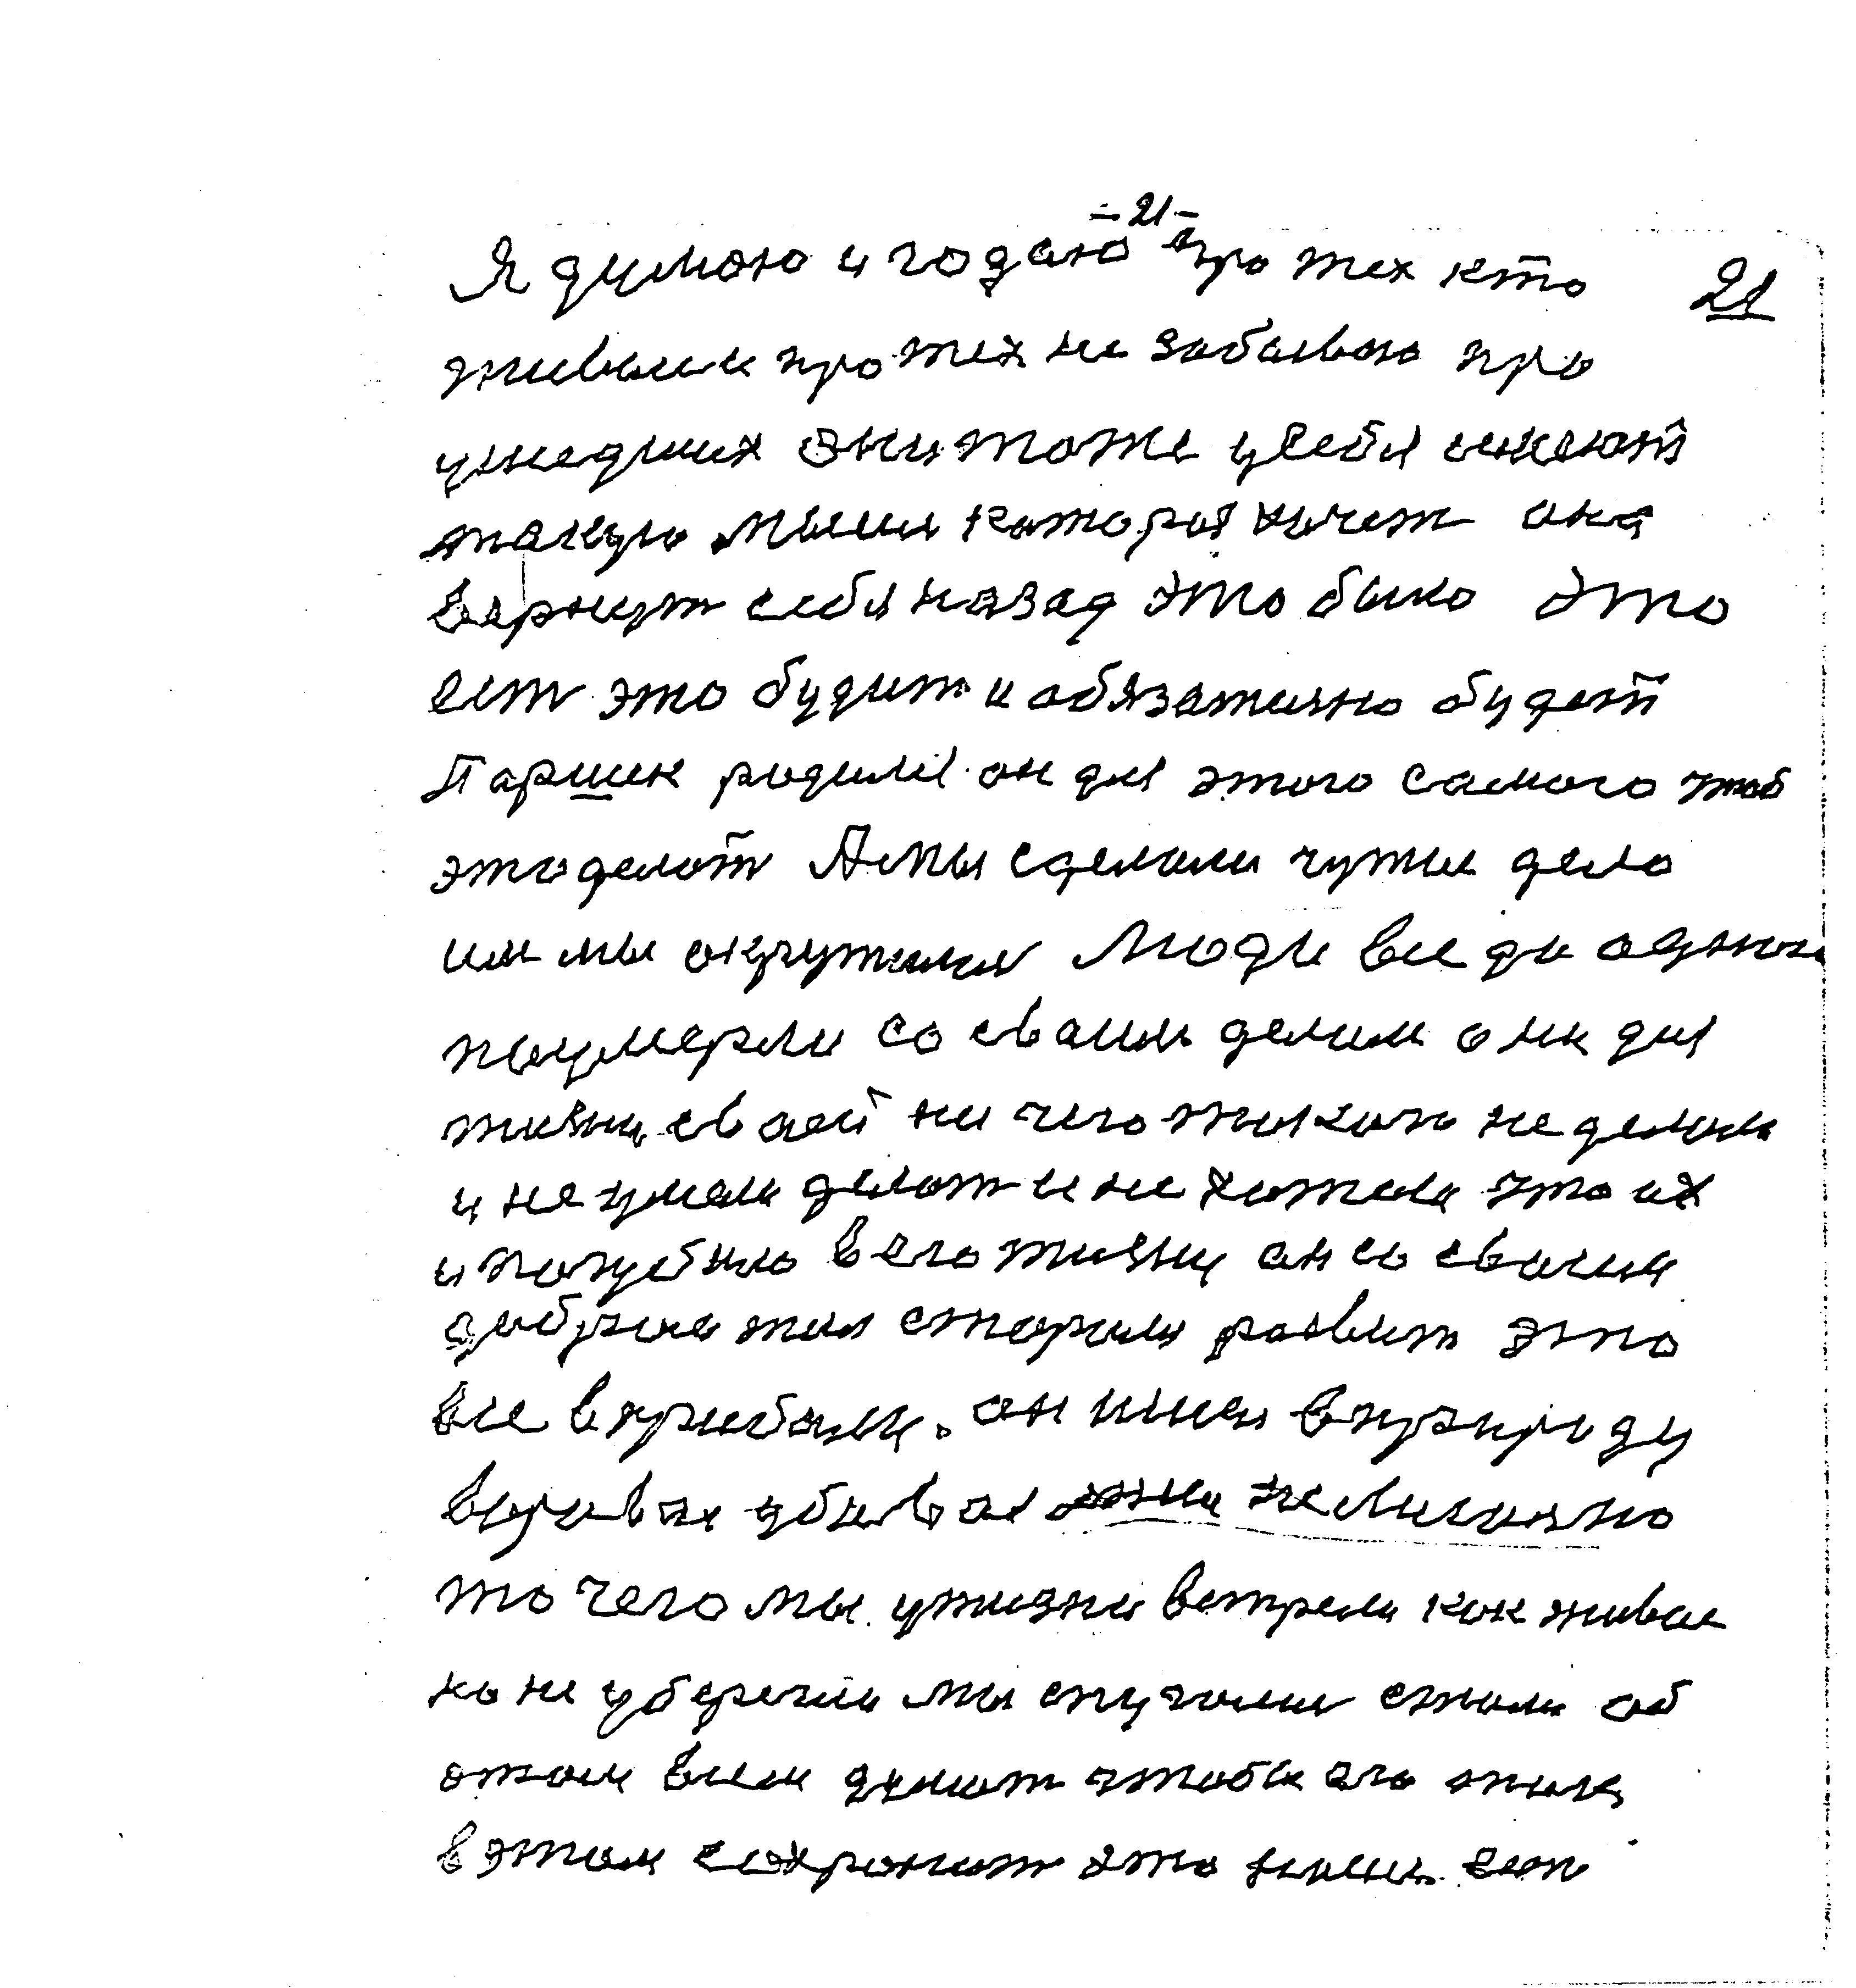 -21-
Я думаю и годаю про тех кто 21
живыи и про тех не забываю про
ушедших они тоже у себя имеют
такую мысил которая хочет она
вернут себя назад это было это
ест это будит и обязатилно будет
Паршек родился он для этого самого чтоб
это делат А мы сделали чужие дело
им мы окружилис Люди все да одного
поумерли со своим делим они для
жизни своей ни чего такого не делали
и не умели делат и не хотели что их
и погубило в его жизни он со своими
добрыме жил старился развит это
все в прибыль. он шел в природу
воровал убивал
то чего мы у жизни встрели как живое
но не уберегли мы случаем стали об
этом всем думат чтобы его так
в этом сохранит это